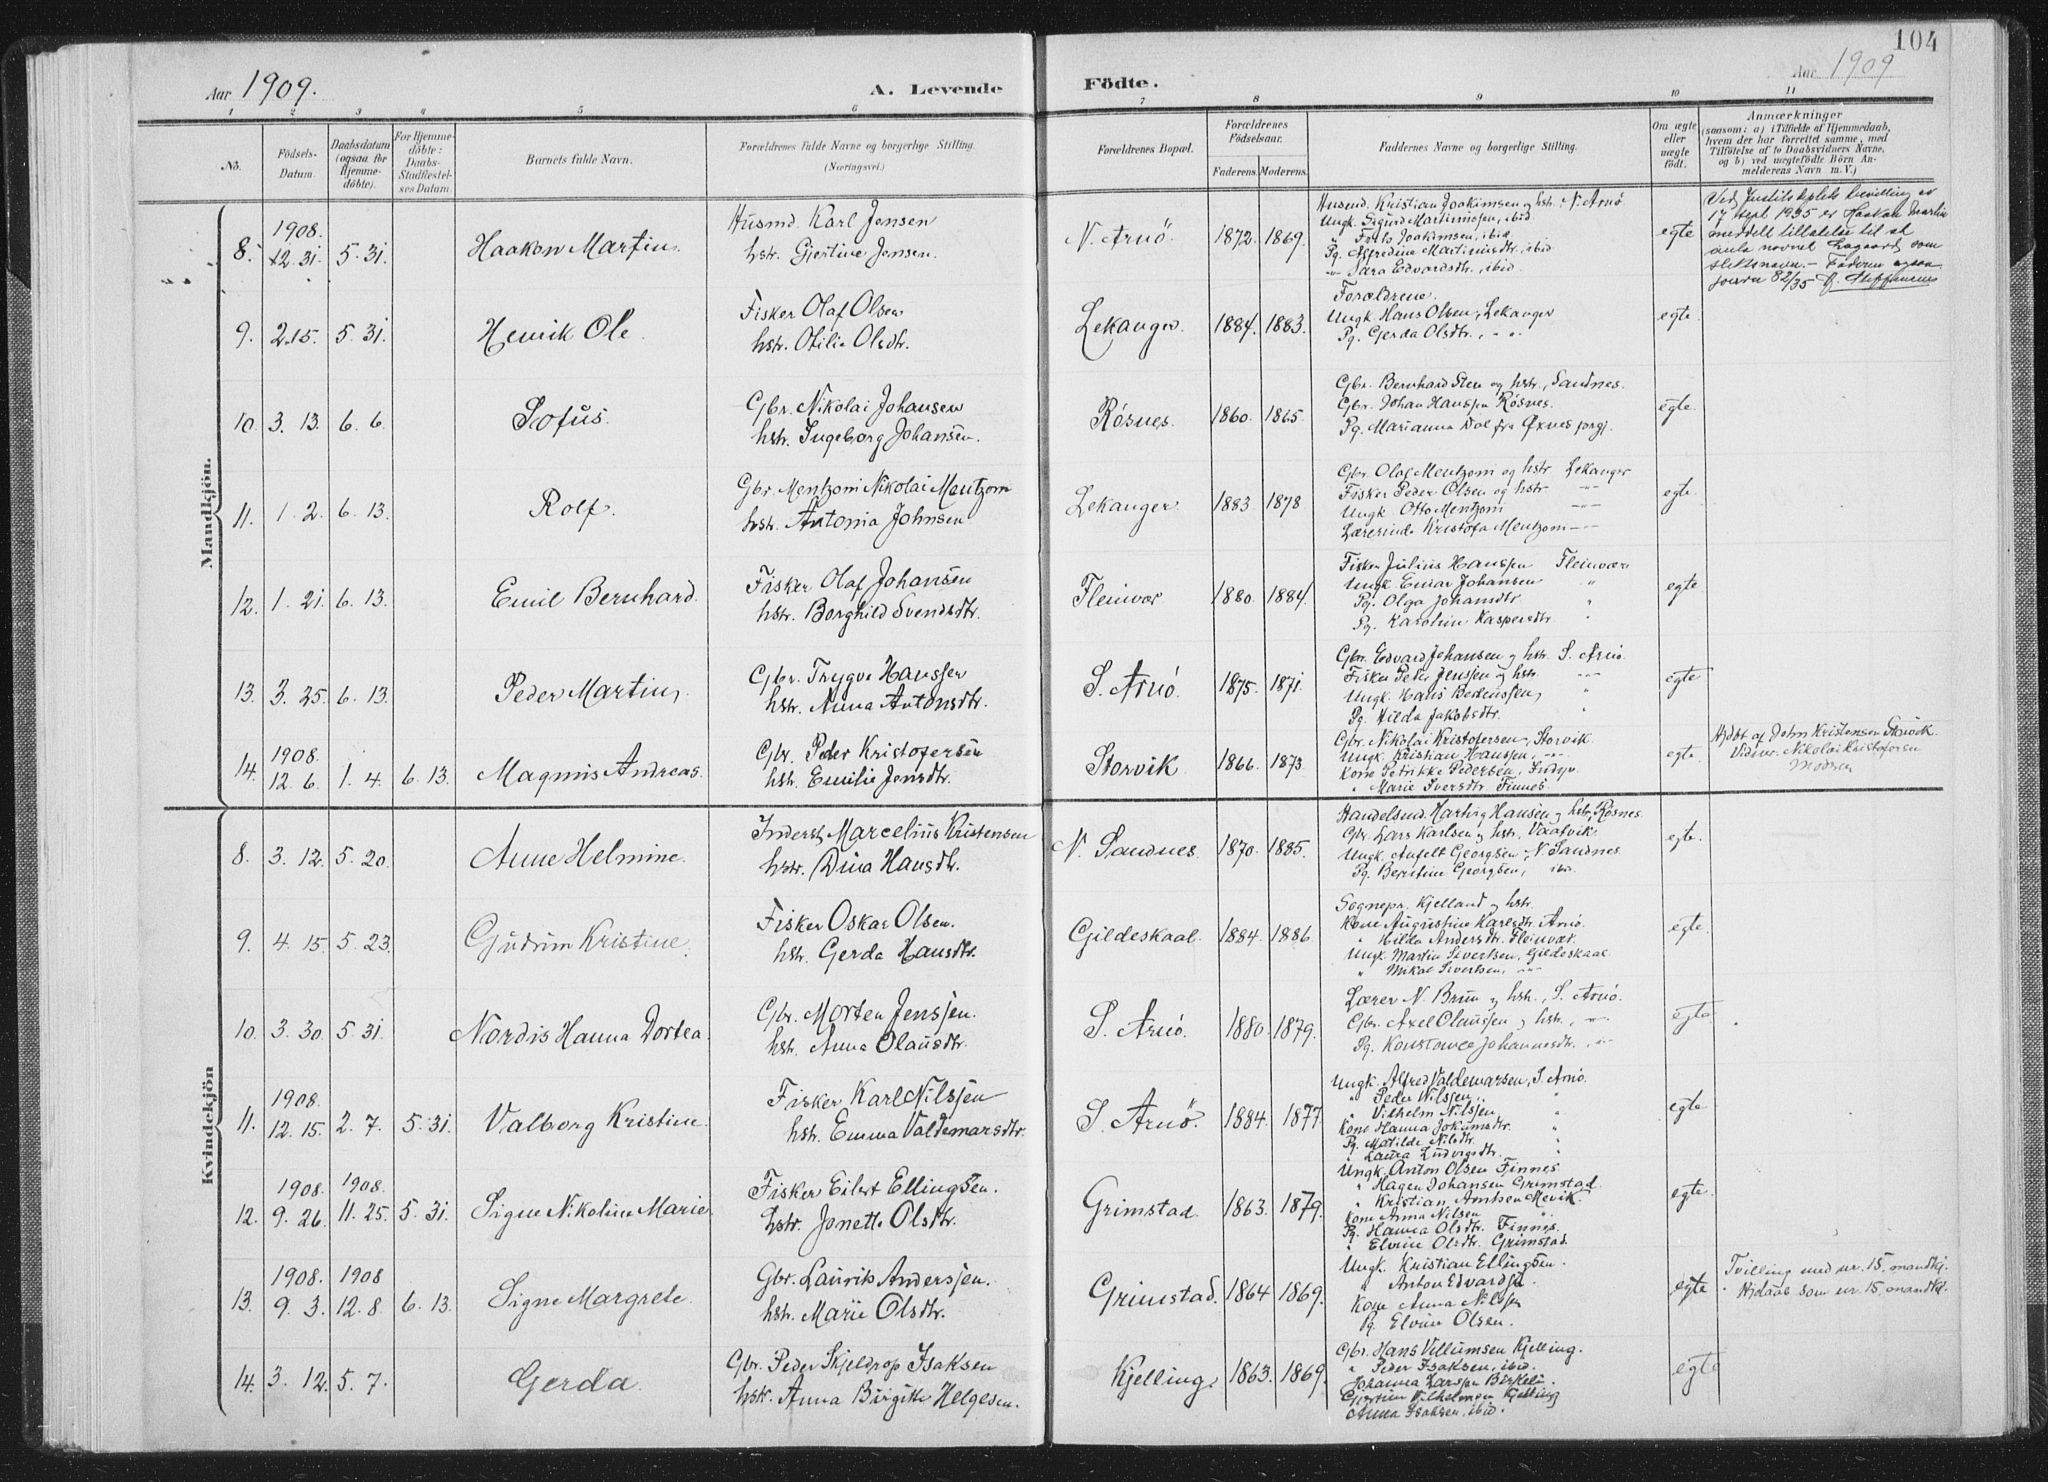 104
Aar 1909.
A. Levende Födte.
Aar 1909
1 2 3 4 5 6 7 8 9 10 11
No.
Födsels-Datum.
Daabsdatum (ogsaa for Hjemme-döbte).
For Hjemme-döbte: Daabs-Stadfæstel-ses Datum.
Barnets fulde Navn.
Forældrenes fulde Navne og borgerlige Stilling. (Næringsvei.)
Forældrenes Bopæl.
Forældrenes Födselsaar.
Faderens. Moderens.
Faddernes Navne og borgerlige Stilling.
Om ægte eller uægte födt.
Anmærkninger
(saasom: a) i Tilfælde af Hjemmedaab,
hvem der har forrettet samme, med
Tilföielse af to Daabsvidners Navne,
og b) ved uægtefödte Börn An-
melderens Navn m. V.)
Mandkjön.
8. 1908. 12. 31. 5. 31. Haakon Martin.
Husmd. Karl Jensen
hstr. Gjertine Jensen.
N. Arnö. 1872. 1869.
Husmd. Kristian Joakimsen og hstr. N. Arnö
Ungk. Sigurd Martinussen, ibid
" Frits Joakimsen, ibid.
Pg. Alfredine Martinusdtr., ibid
" Sara Edvardsdtr., ibid.
egte
Ved Justitsdeptets bevilling av
17 sept. 1935 er Haakon Martin
meddelt tillatelse til at
anta navnet som
slektsnavn. –
journ 82/35
9. 2. 15. 5. 31. Henrik Ole
Fisker Olaf Olsen
hstr. Otilie Olsdtr.
Lekanger. 1884. 1883.
Forældrene.
Ungk. Hans Olsen, Lekanger
Pg. Gerda Olsdtr., " "
egte.
10. 3. 13. 6. 6. Sofus.
Gbr. Nikolai Johansen
hstr. Ingeborg Johansen.
Rösnes. 1860. 1865.
Gbr. Bernhard Steen og hstr., Sandnes.
Gbr. Johan Hanssen Rösnes.
Pg. Marianna Dol fra Øxnes prgj.
egte.
11. 1. 2. 6. 13. Rolf.
Gbr Mentzoni Nikolai Mentzoni
hstr. Antonia Johnsen
Lekanger 1883 1878
Gbr. Olaf Mentzoni og hstr Lekanger
Fisker Peder Olsen og hstr " "
Ungk. Otto Mentzoni " "
Lærerinde Kristofa Mentzoni " "
egte.
12. 1. 21. 6. 13. Emil Bernhard.
Fisker Olaf Johansen
hstr. Borghild Svendsdtr.
Fleinvær 1880. 1884.
Fisker Julius Hanssen Fleinvær
Ungk. Einar Johansen "
Pg. Olga Johansdtr "
Pg. Karoline Kaspersdtr. "
egte
13. 3. 25. 6. 13. Peder Martin,
Gbr. Trygve Hanssen
hstr. Anna Antonsdtr.
S. Arnö. 1875. 1871.
Gbr. Edvard Johansen og hstr. S. Arnö.
Fisker Peder Jenssen og hstr. " "
Ungk. Hans Berentssen, "
Pg. Hilda Jakobsdtr. "
egte
14. 1908. 12. 6. 1. 4. 6. 13. Magnus Andreas.
Gbr. Peder Kristofersen
hstr. Emilie Jensdtr.
Storvik. 1866. 1873.
Gbr. Nikolai Kristofersen, Storvik.
Ungk. Kristian Hanssen, " "
Kone Petrikke Pedersen, Indyr.
" Marie Iversdtr Finnes
egte.
Hjdbt af John Kristensen Skavik.
Vidner. Nikolai Kristofersen
Moderen
Kvindekjön
8. 3. 12. 5. 20. Anne Helmine.
Inderst Marcelius Kristensen
hstr. Dina Hansdtr.
N. Sandnes. 1870. 1885.
Handelsmd. Hartvig Hansen og hstr, Rösnes.
Gbr. Lars Karlsen og hstr. Vaatvik
Ungk. Anfelt Georgsen, N. Sandnes.
Pg. Berntine Georgsen, ibid.
egte.
9. 4. 15. 5. 23. Gudrun Kristine.
Fisker Oskar Olsen.
hstr. Gerda Hansdtr.
Gildeskaal. 1884. 1886.
Sognepr. Kjelland og hstr.
Kone Augustine Karlsdtr. Arnö.
" Hilda Andersdtr. Fleinvær.
Ungk. Martin Sivertsen, Gildeskaal
" Mikal Sivertsen, " "
egte.
10. 3. 30. 5. 31. Nordis Hanna Dortea.
Gbr. Morten Jenssen.
hstr. Anna Olausdtr.
S. Arnö. 1880. 1879.
Lærer N. Brun og hstr., S. Arnö.
Gbr. Axel Olaussen og hstr., " "
Pg. Konstance Johannesdtr., " "
egte.
11. 1908. 12. 15. 2. 7. 5. 31. Valborg Kristine.
Fisker Karl Nilssen
hstr. Emma Valdemarsdtr.
S. Arnö. 1884. 1877
Ungk. Alfred Valdemarsen, S. Arnö.
" Peder Nilssen, "
" Vilhelm Nilssen, "
Kone Hanna Jokumsdtr. "
Pg. Matilde Nilsdtr. "
" Laura Ludvigsdtr. "
egte
12. 1908. 9. 26. 1908. 11. 25. 5. 31. Signe Nikoline Marie.
Fisker Eilert Ellingsen.
hstr. Jonette Olsdtr.
Grimstad. 1863. 1879.
Ungk. Anton Olsen Finnes.
" Hagen Johansen Grimstad.
" Kristian Arntsen Mevik.
Kone Anna Nilsen "
Pg. Hanna Olsdtr. Finnes.
" Elvine Olsdtr. Grimstad.
egte.
13. 1908. 9. 3. 1908 12. 8. 6. 13. Signe Margrete.
Gbr. Laurits Anderssen.
hstr. Marie Olsdtr.
Grimstad. 1864 1869.
Ungk. Kristian Ellingsen.
" Anton Edvardsen
Kone Anna Nilssen
Pg. Elvine Olsen.
egte
Tvilling med nr. 15, mandkj.
Hjdaab som nr. 15, mandkj.
14. 3. 12. 5. 7. Gerda.
Gbr. Peder Skjeldrop Isaksen
hstr. Anna Birgitte Helgesen.
Kjelling. 1863. 1869.
Gbr. Hans Villumsen Kjelling.
" Peder Isaksen, ibid.
Johanna Larssen Birkeli.
Gjertine Vilhelmsen Kjelling
Anna Isaksen, ibid.
egte